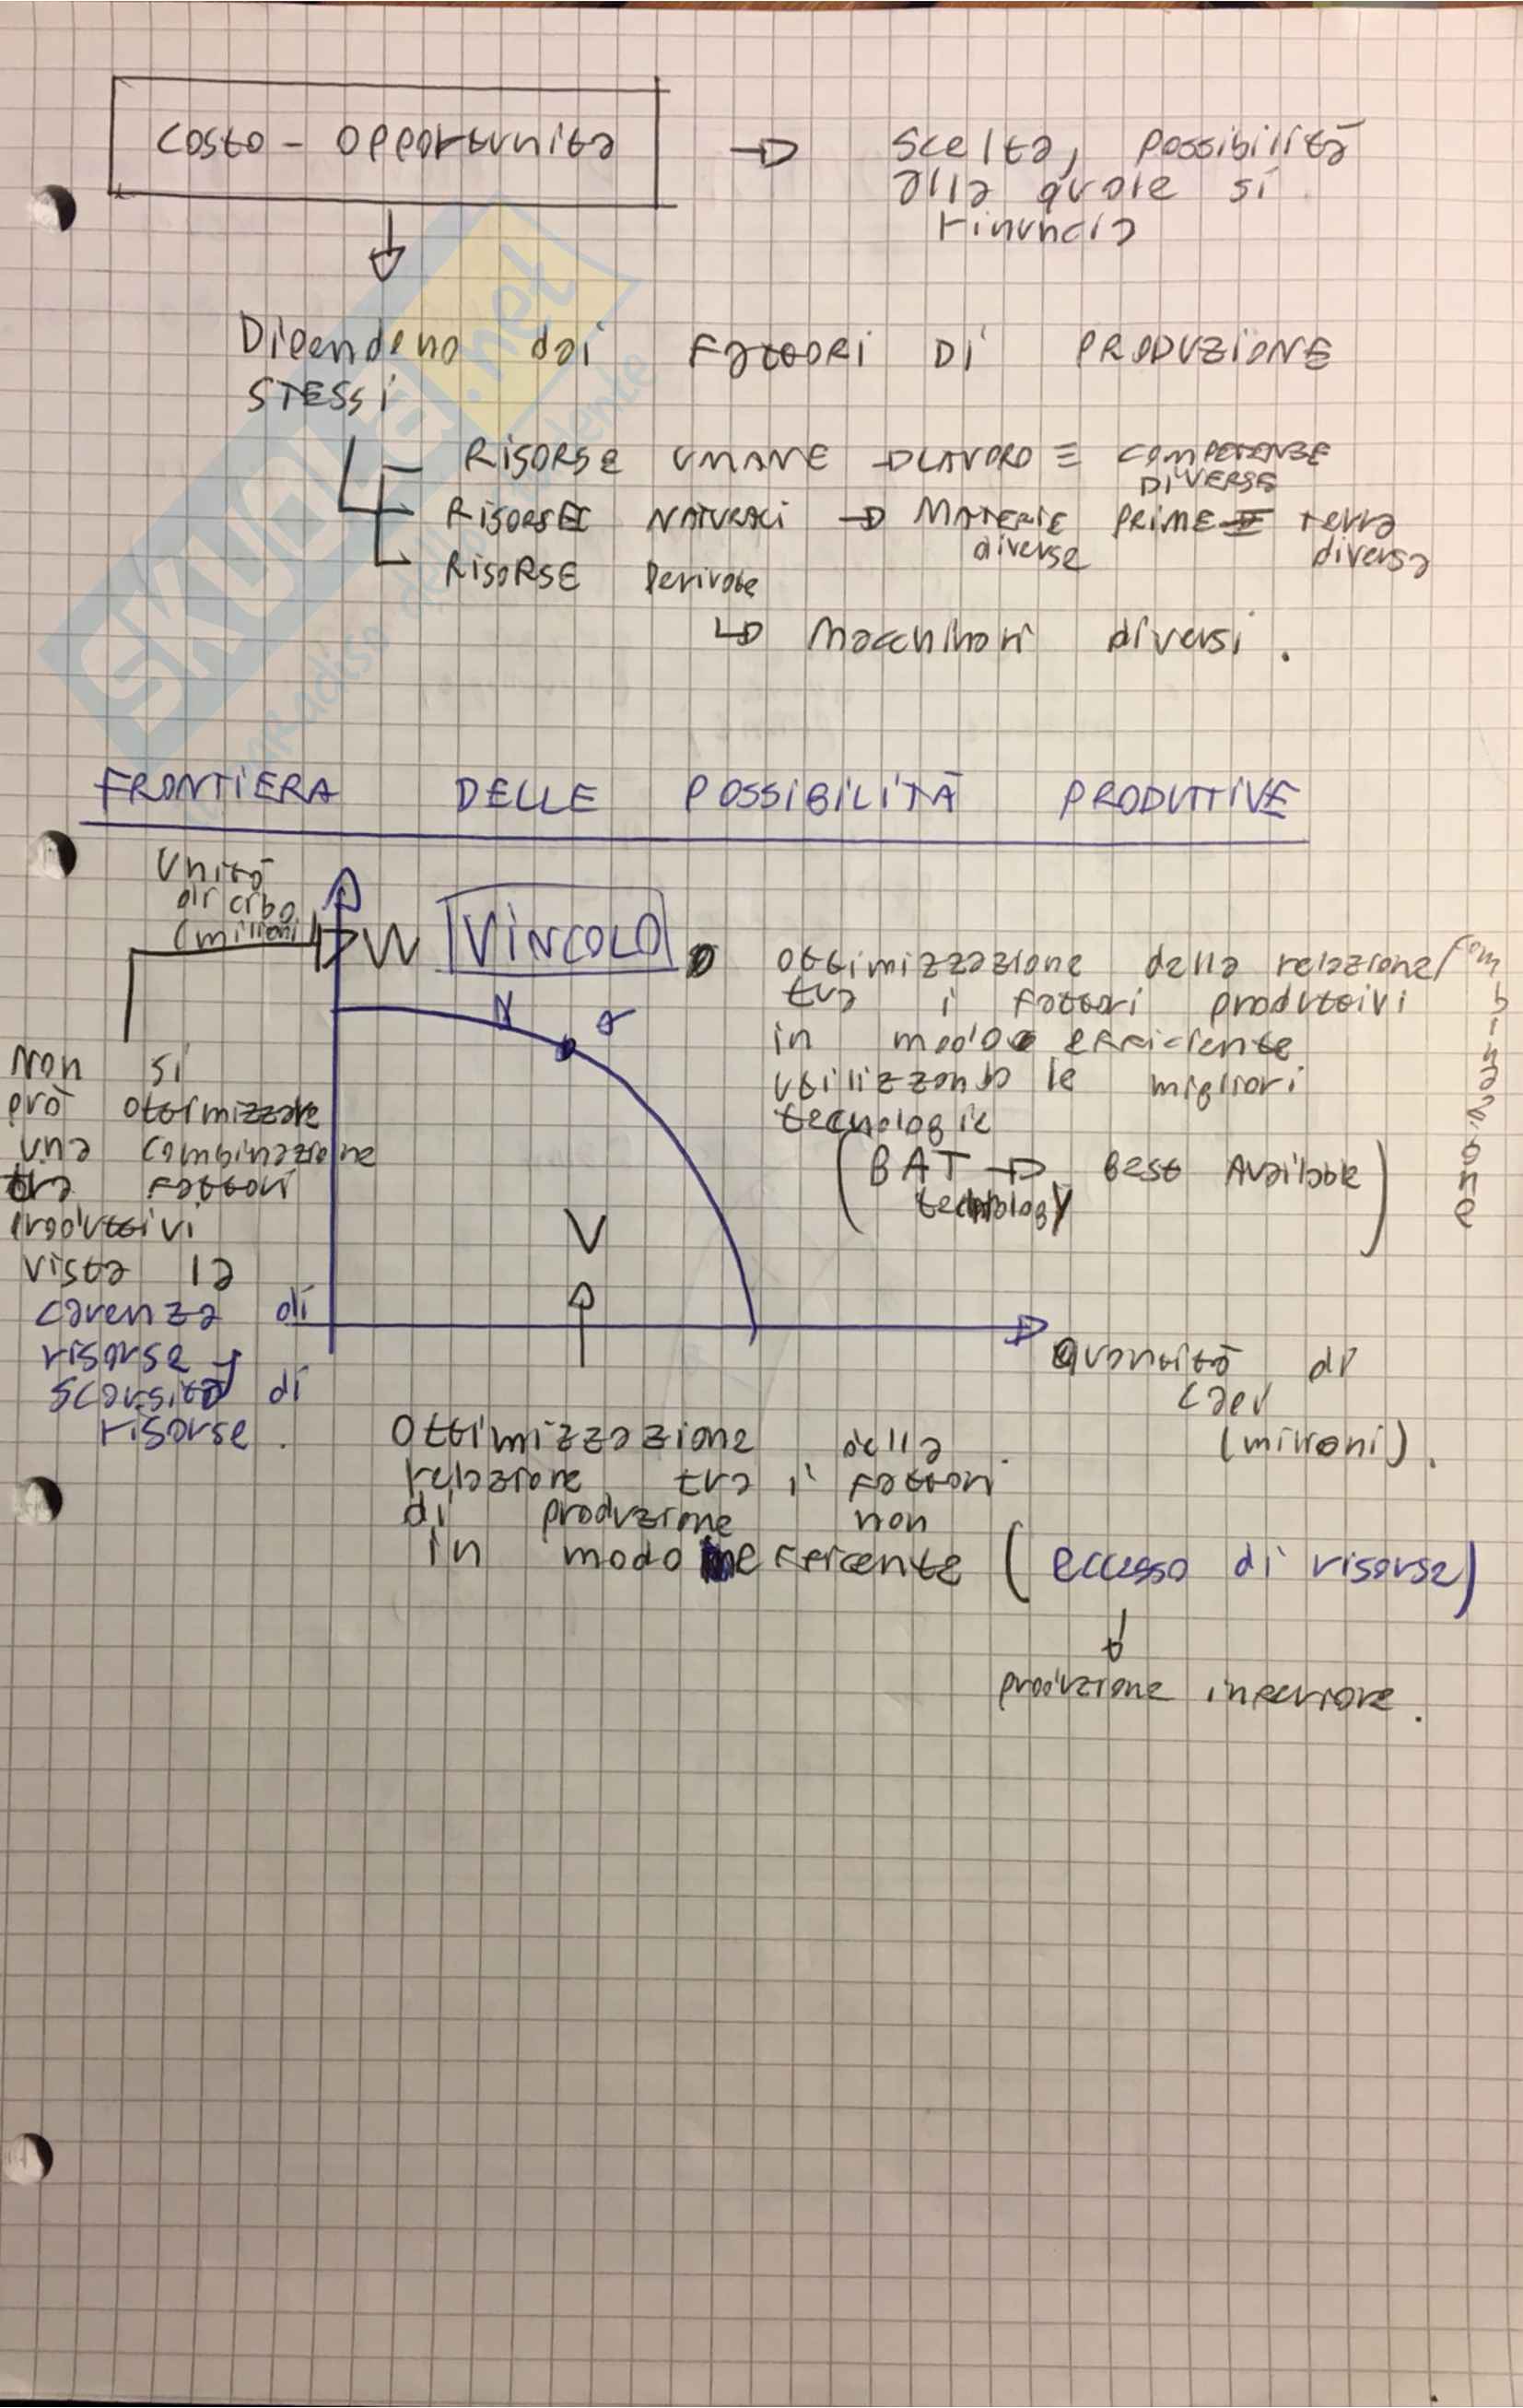 Costo - opportunità → Scelta, possibilità
alla quale si
rinuncia
Dipendono dai FATTORI DI PRODUZIONE
STESSI
RISORSE UMANE → LAVORO = COMPETENZE
DIVERSE
RISORSE NATURALI → MATERIE PRIME = terra
diverse diversa
RISORSE Derivate
↳ Macchinari diversi.
FRONTIERA DELLE POSSIBILITÀ PRODUTTIVE
Unità
di cibo
(milioni)
W VINCOLO
ottimizzazione della relazione/combinazione
tra i fattori produttivi
in modo efficiente
utilizzando le migliori
tecnologie
(BAT → Best Available
technology)
Non si
può ottimizzare
una combinazione
tra fattori
produttivi
vista la
carenza di
risorse
scarsità di
risorse.
V
Quantità di
(milioni).
Ottimizzazione della
relazione tra i fattori
di produzione non
in modo efficente (eccesso di risorse)
↓
produzione inferiore.
SKUOLA.net